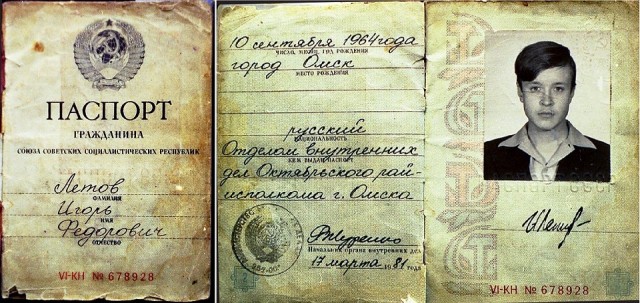 ПАСПОРТ
ГРАЖДАНИНА
СОЮЗА СОВЕТСКИХ СОЦИАЛИСТИЧЕСКИХ РЕСПУБЛИК
Летов
ФАМИЛИЯ
Игорь
ИМЯ
Федорович
ОТЧЕСТВО
VI-КН № 678928
10 сентября 1964 года
ЧИСЛО, МЕСЯЦ, ГОД РОЖДЕНИЯ
город Омск
МЕСТО РОЖДЕНИЯ
русский
НАЦИОНАЛЬНОСТЬ
Отделом внутренних
КЕМ ВЫДАН ПАСПОРТ
дел Октябрьского рай-
исполкома г. Омска
Начальник органа внутренних дел
17 марта 1981 года
VI-КН № 678928